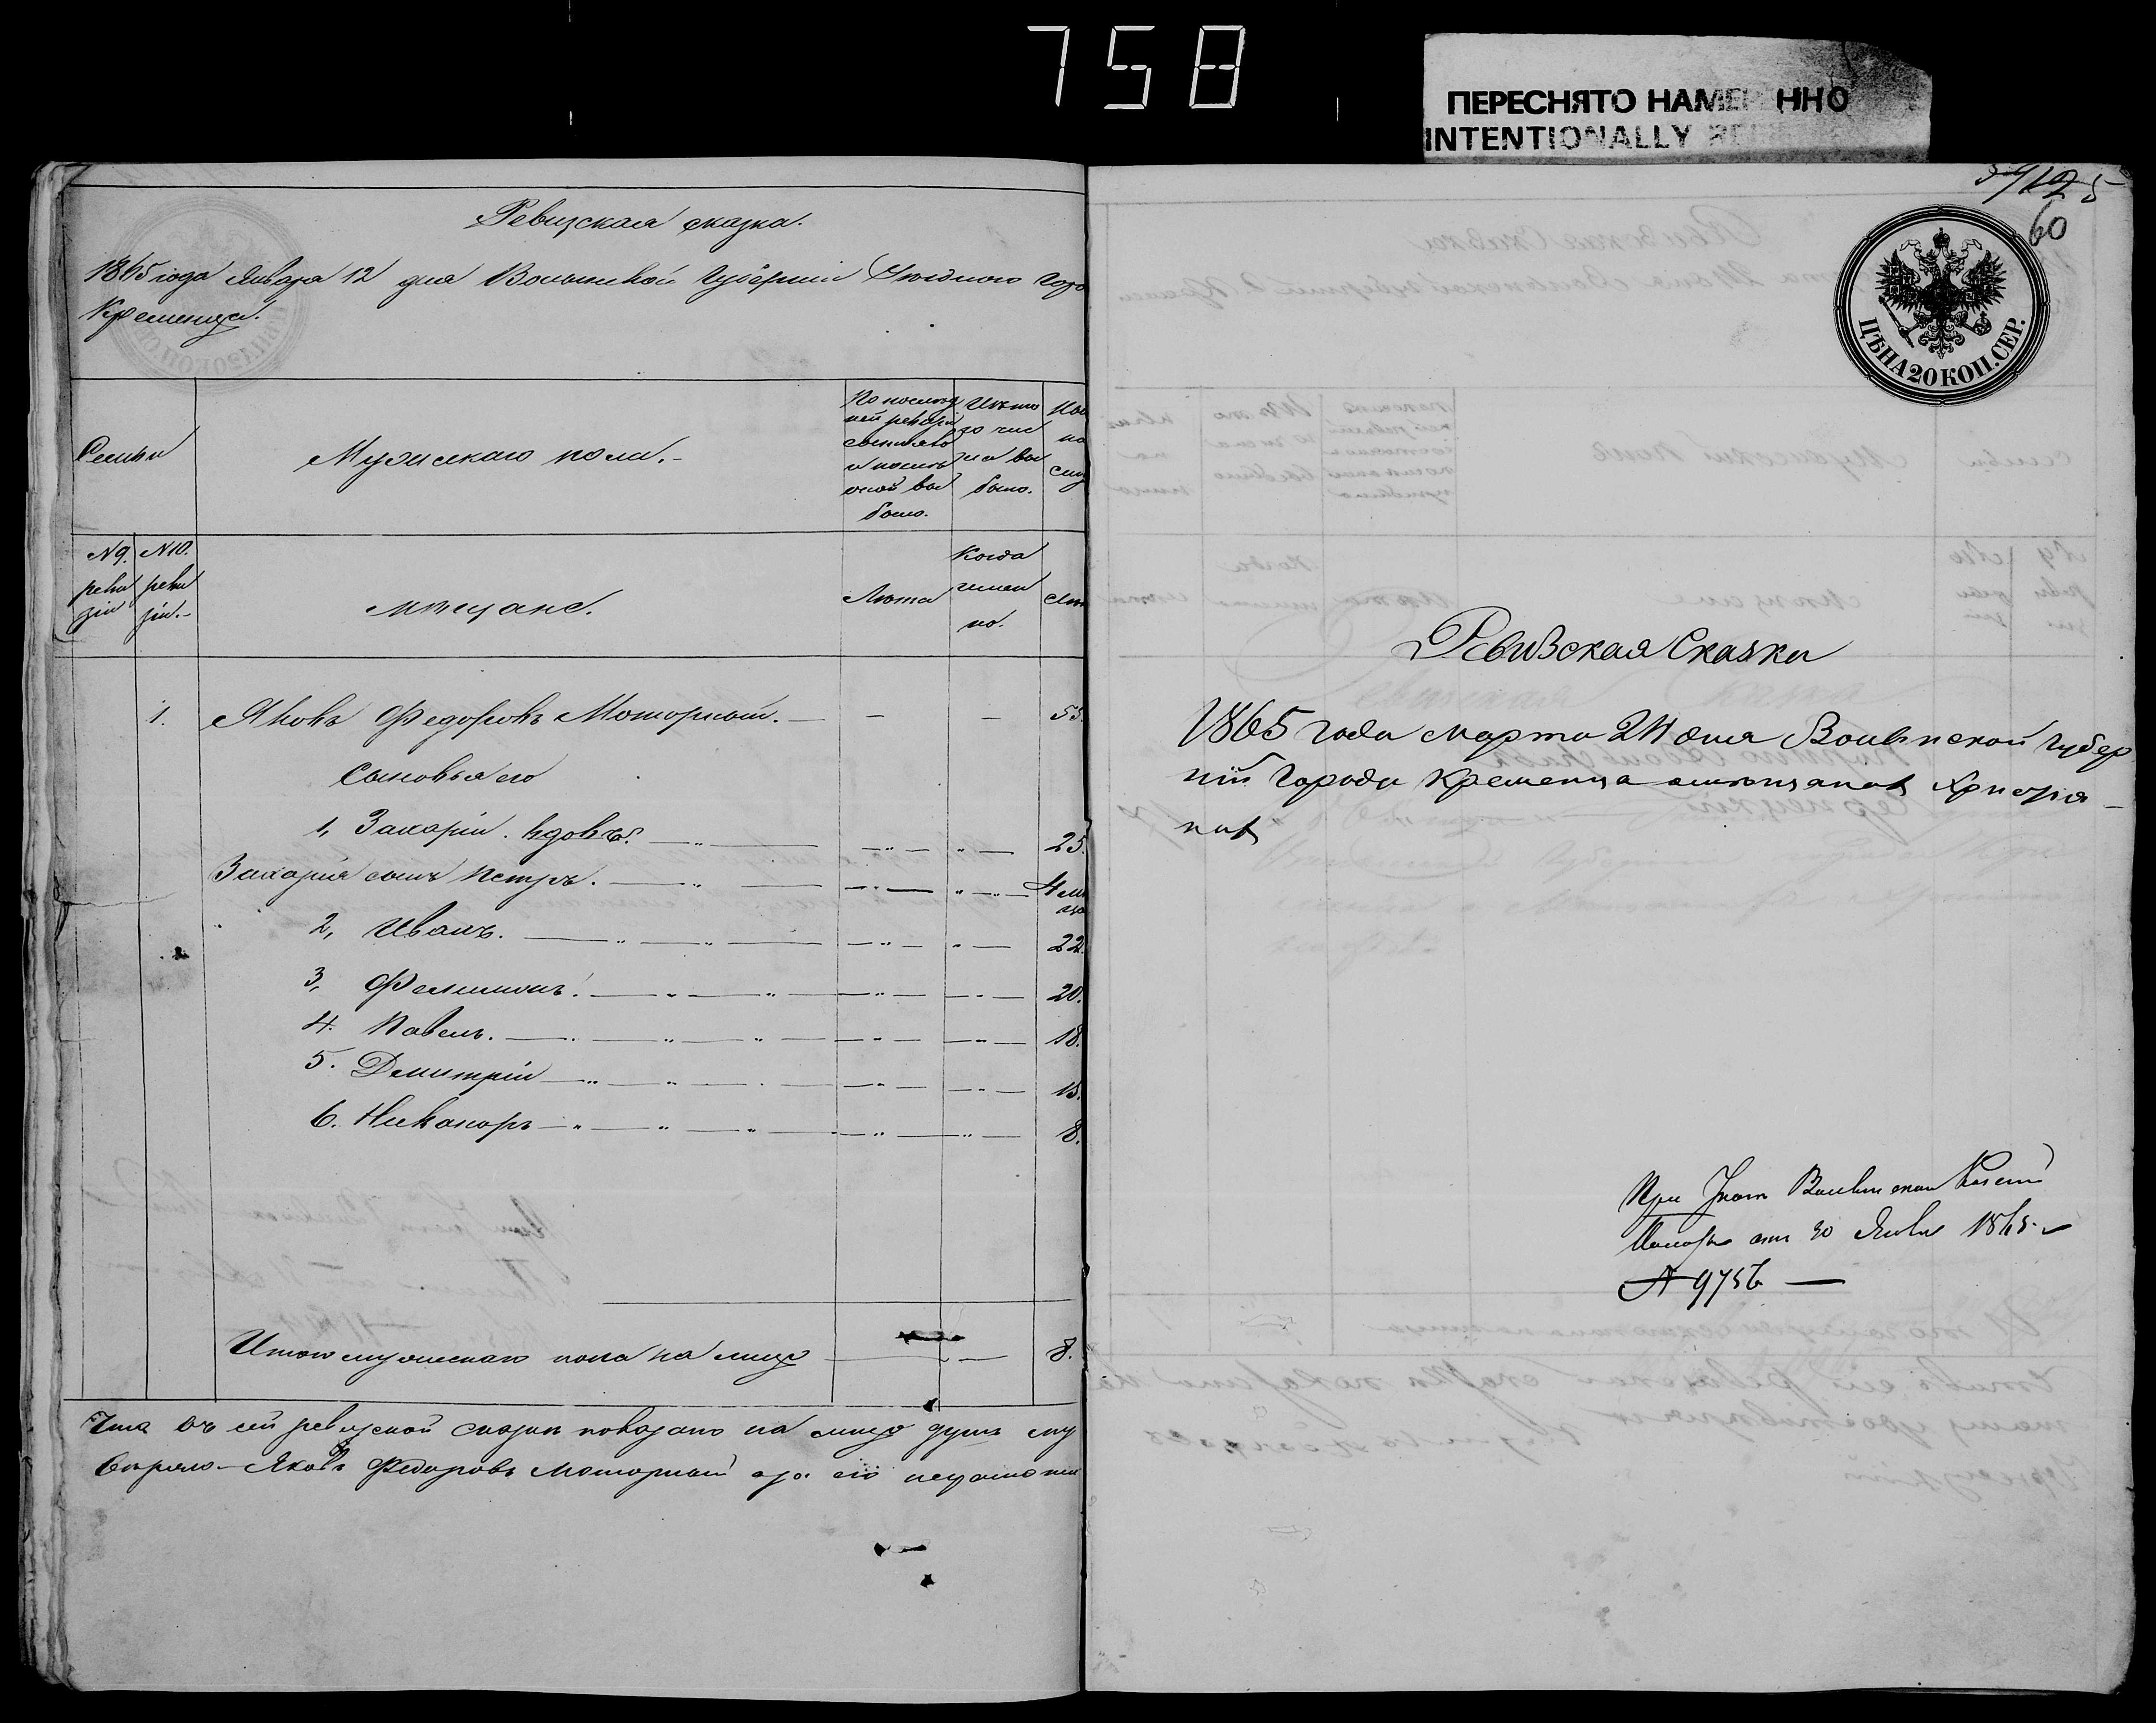 758
ПЕРЕСНЯТО НАМЕ ННО
INTENTIONALLY
Ревизская сказка.
1865 года Января 12 дня Волынской Губерніи Уѣзднаго горо
Кременца.
Семьи
Мужескаго пола.-
По послѣд
ней ревизіи
состояло
и послѣ
оной вы
было.
Изъ то
го чис
ла вы
было.
№9.
реви
зіи
№10.
реви
зіи.-
мѣщане.
Лѣта
Когда
имен
но.
1. Яковъ Федоровъ Моторный. 55.
Сыновья его
1, Захарій. вдовъ. 25.
Захарія сынъ Петръ. 4 мѣ
2, Иванъ. 22.
3, Филимонъ. 20.
4. Павелъ. 18.
5. Дмитрій 15.
6. Никаноръ 8.
Итого мужескаго пола на лицо 8.
Что въ сей ревизской сказкѣ показано на лицо душъ му
Яковъ Федоровъ Моторный а за его неграмотн
125
60
ЦѢНА 20 КОП. СЕР.
Ревизская Сказка
1865 года Марта 24 дня Волынской губер
ніи города Кременца мѣщанахъ Христіа-
нах
При Указѣ Волынской Казен
Палаты от 30 Янв 1865
№ 9756